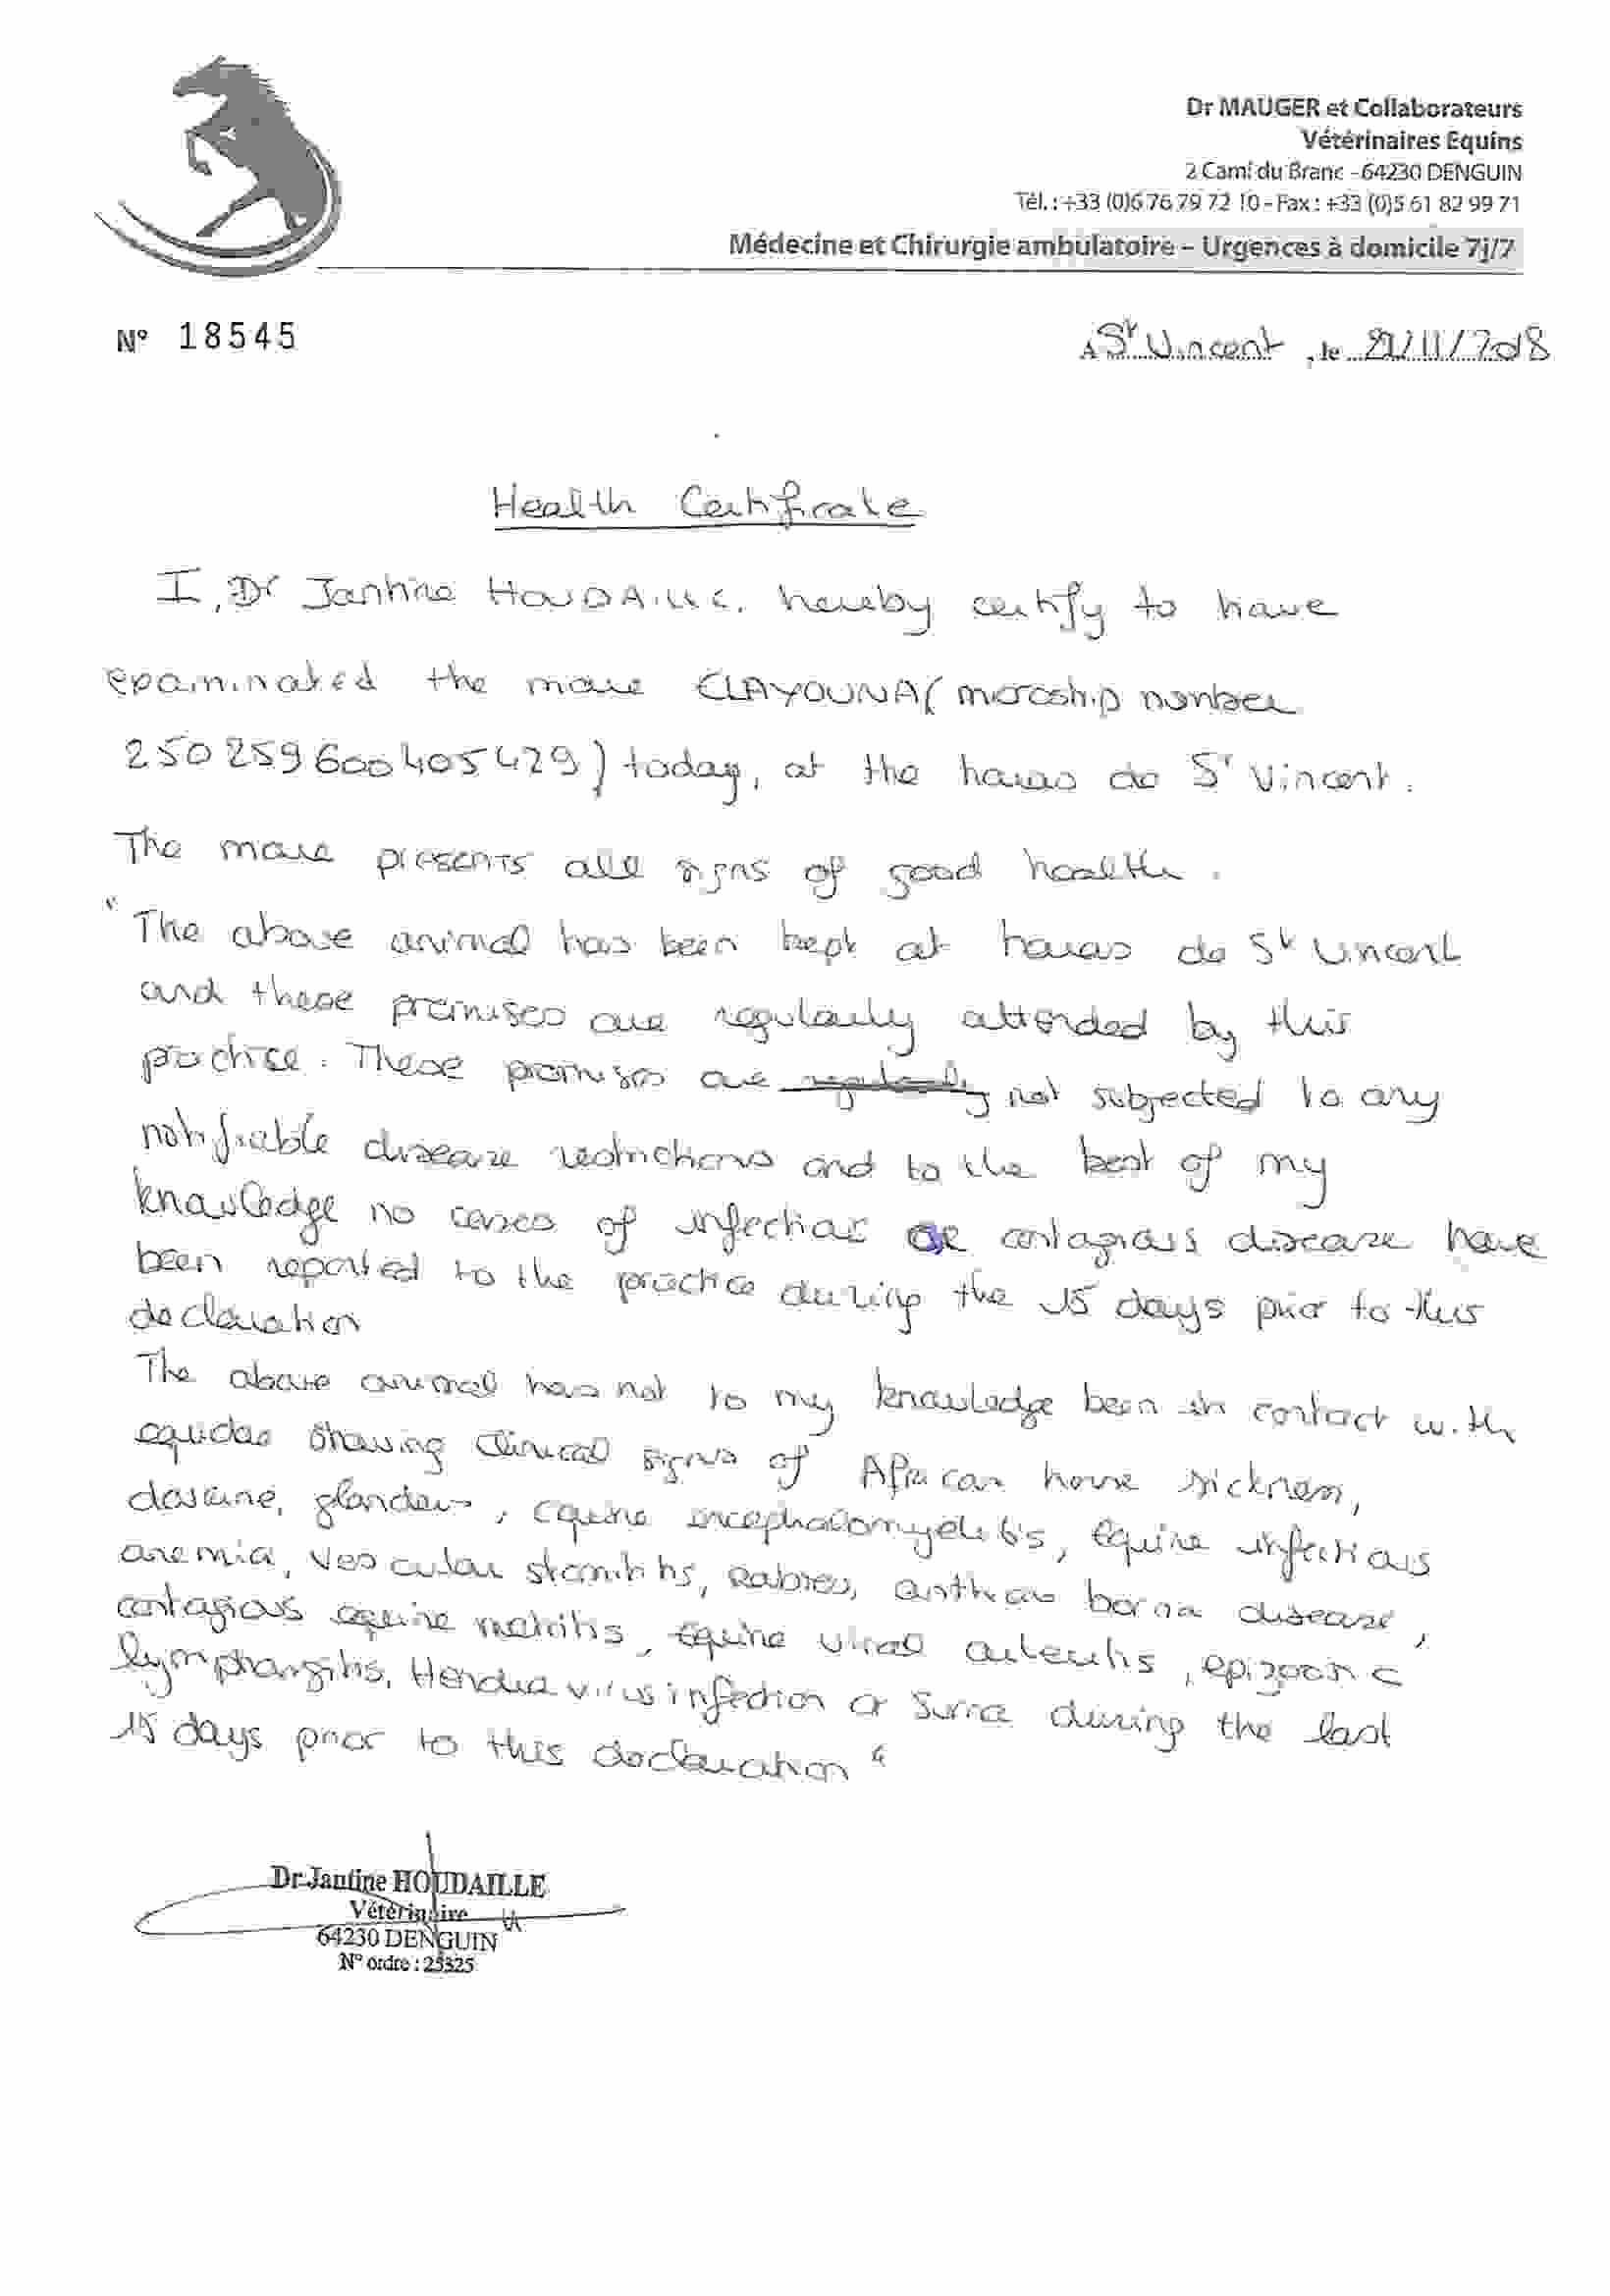 Dr MAUGER et Collaborateurs
Vétérinaires Equins
2 Cami du Branc - 64230 DENGUIN
Tél. : +33 (0)6 76 79 72 10 - Fax : +33 (0)5 61 82 99 71
Médecine et Chirurgie ambulatoire – Urgences à domicile 7j/7
N° 18545
A St Vincent, le /11/2018
Health Certificate
I, Dr Jantine HOUDAILLE, hereby certify to have
examinated the mare CLAYOUNA (microship number
250259600405429) today, at the haras de St Vincent.
The mare presents all signs of good health.
"The above animal has been kept at haras de St Vincent
and these premises are regularly attended by this
practice. These premises are regularly not subjected to any
notifiable disease restrictions and to the best of my
knowledge no cases of infectious or contagious disease have
been reported to the practice during the 15 days prior to this
declaration
The above animal has not to my knowledge been in contact with
equidae showing clinical signs of African horse sickness,
dourine, glanders, equine encephalomyelitis, Equine infectious
anemia, vesicular stomatitis, rabies, anthrax borna disease,
contagious equine metritis, Equine viral arteritis, epizootic
lymphangitis, Hendra virus infection or Surra during the last
15 days prior to this declaration"
Dr Jantine HOUDAILLE
Vétérinaire
64230 DENGUIN
N° ordre : 25325